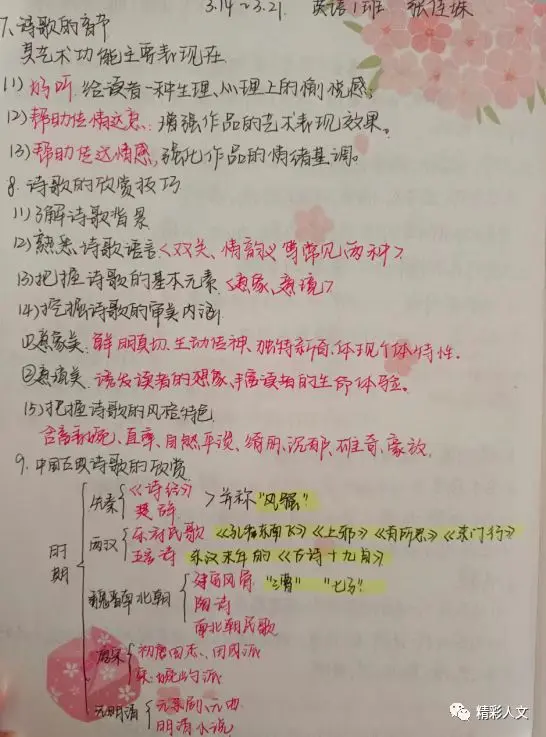 3.14~3.21. 英语1班 张佳姝
7、诗歌的音节
其艺术功能主要表现在
(1) 好听 给读者一种生理、心理上的愉悦感;
(2) 帮助传情达意: 增强作品的艺术表现效果。
(3) 帮助传达情感, 强化作品的情绪基调。
8. 诗歌的欣赏技巧
(1) 了解诗歌背景
(2) 熟悉诗歌语言<双关、情韵义等常见两种>
(3) 把握诗歌的基本元素<意象、意境>
(4) 挖掘诗歌的审美内涵
①意象美: 鲜明真切、生动传神、独特新奇、体现个体特性.
②意境美: 诱发读者的想象,丰富读者的生命体验。
(5) 把握诗歌的风格特色
含蓄、直率、自然平淡、绮丽、沉郁、雄奇、豪放.
9. 中国古典诗歌的欣赏
时期
先秦 《诗经》 楚辞 >并称"风骚"
两汉 乐府民歌 《孔雀东南飞》《上邪》《有所思》《东门行》
五言诗 东汉末年的《古诗十九首》
魏晋南北朝 建安风骨 "三曹" "七子"
陶诗
南北朝民歌
唐宋 初唐四杰、田园派
宋:婉约派
元明清 元杂剧、元曲
明清小说
精彩人文